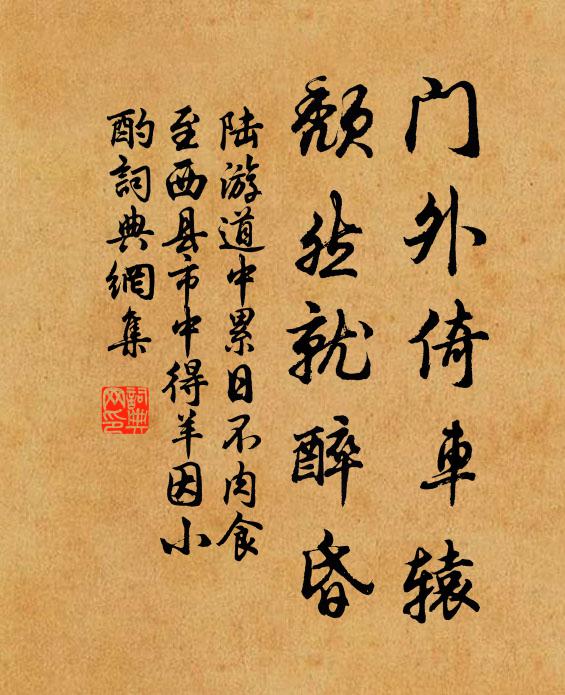 门外倚車辕
颓然就醉昏
陆游道中累日不肉食
至西县市中得羊因小
酌詞典網集
詞典
网印